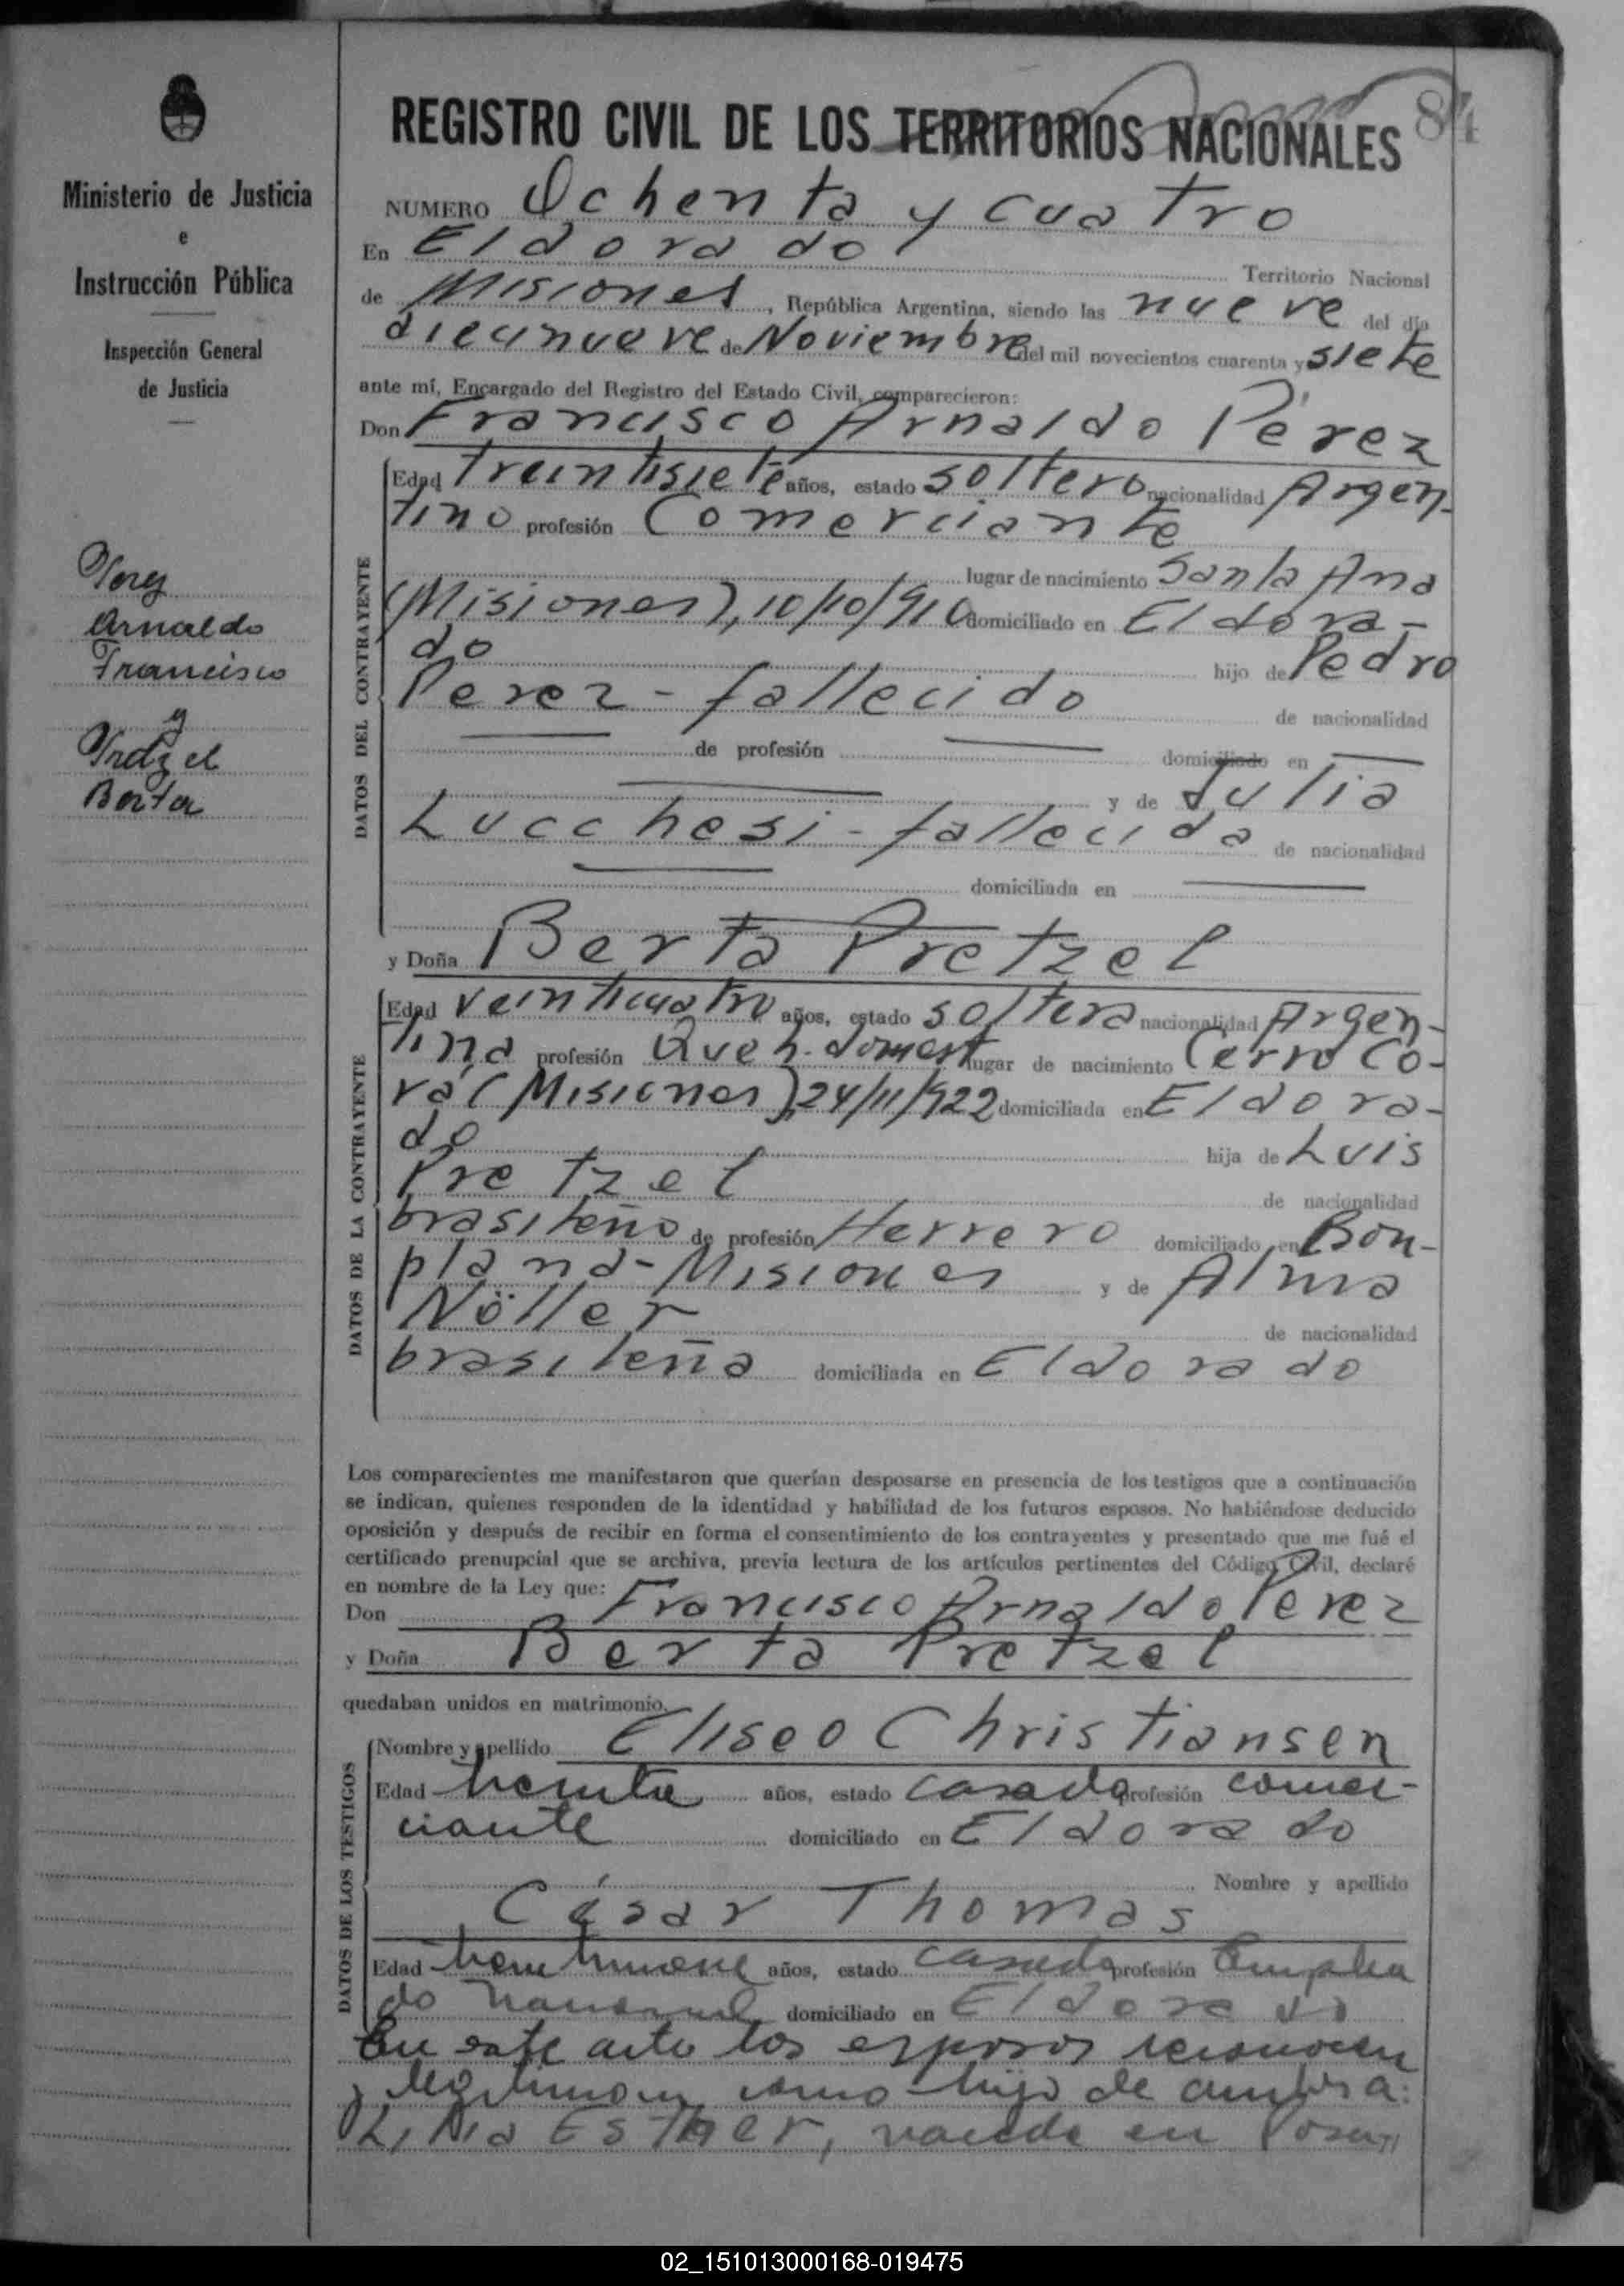 Ministerio de Justicia
e
Instrucción Pública
Inspección General
de Justicia
Perez
Arnaldo
Francisco
y
Pretzel
Berta
84
REGISTRO CIVIL DE LOS TERRITORIOS NACIONALES
NUMERO Ochenta y cuatro
En Eldorado Territorio Nacional
de Misiones, República Argentina, siendo las nueve del día
diecinueve de Noviembre del mil novecientos cuarenta y siete
ante mí, Encargado del Registro del Estado Civil, comparecieron:
Don Francisco Arnaldo Pérez
DATOS DEL CONTRAYENTE
Edad treintisiete años, estado soltero nacionalidad Argen-
tino profesión Comerciante
lugar de nacimiento Santa Ana
(Misiones), 10/10/910 domiciliado en Eldora-
do hijo de Pedro
Perez - fallecido de nacionalidad
de profesión domiciliado en
y de Julia
Lucchesi - fallecida de nacionalidad
domiciliada en
y Doña Berta Pretzel
DATOS DE LA CONTRAYENTE
Edad veinticuatro años, estado soltera nacionalidad Argen-
tina profesión Queh. domest lugar de nacimiento Cerro Co-
rá (Misiones), 24/11/922 domiciliada en Eldora-
do hija de Luis
Pretzel de nacionalidad
brasileño de profesión Herrero domiciliado en Bon-
pland - Misiones y de Alma
Nöller de nacionalidad
brasileña domiciliada en Eldorado
Los comparecientes me manifestaron que querían desposarse en presencia de los testigos que a continuación
se indican, quienes responden de la identidad y habilidad de los futuros esposos. No habiéndose deducido
oposición y después de recibir en forma el consentimiento de los contrayentes y presentado que me fué el
certificado prenupcial que se archiva, previa lectura de los artículos pertinentes del Código Civil, declaré
en nombre de la Ley que:
Don Francisco Arnaldo Perez
y Doña Berta Pretzel
quedaban unidos en matrimonio.
DATOS DE LOS TESTIGOS
Nombre y apellido Eliseo Christiansen
Edad treinta años, estado casado profesión comer-
ciante domiciliado en Eldorado
Nombre y apellido
César Thomas
Edad años, estado casado profesión Emplea
do nacional domiciliado en Eldorado
En este acto los esposos reconocen
y legitiman como hija de ambos a:
Lidia Esther, nacida en Posa
02_151013000168-019475